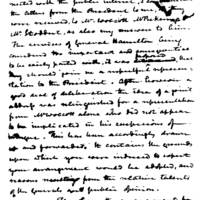 nected with the public interest, I
the letter from the President to me,
were received, to Mr. Wolcott McHenry &
Mr. Stoddert, as also my answer to him.
The services of General Hamilton being
considered too important and
to be easily parted with, it was that
they should join in a respectful represen-
tation to the President. After however a
good deal of deliberation the idea of a joint
address was relinquished for a representation
from Mr. Wolcott alone who did not appear
to be implicated in his suspicions of
intrigue. This has been accordingly drawn
up and forwarded; it contains the grounds
upon which you were induced to expect
your arrangement would be adopted, and
reasons resulting from the relative talents
of the Generals and public opinion.